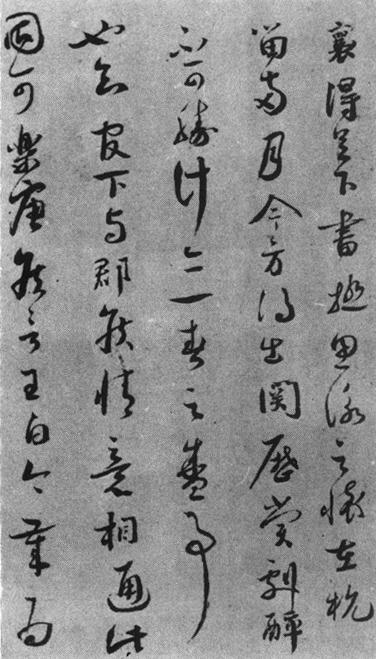 襄得足下書極思詠之懷在杭
留兩月今方得出關歷賞劇醉
不可勝計亦一春之盛事
也知官下与郡侯情意相通此
固可樂唐侯言王白今歲為